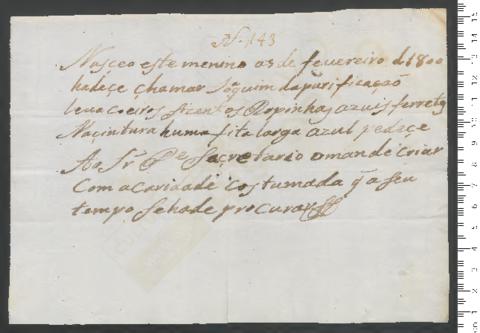 N. 143
Nasceo este menino a 3 de fevereiro d 1800
hadeçe chamar Joquim da purificaçaõ
leva coeiros Ropinhas azuis ferrete
Na çintura huma fita larga azul pedaçe
Ao Sr. Pe Sacretario o mande criar
Com a caridade Costumada q̃ a seu
tempo Sehade procurar